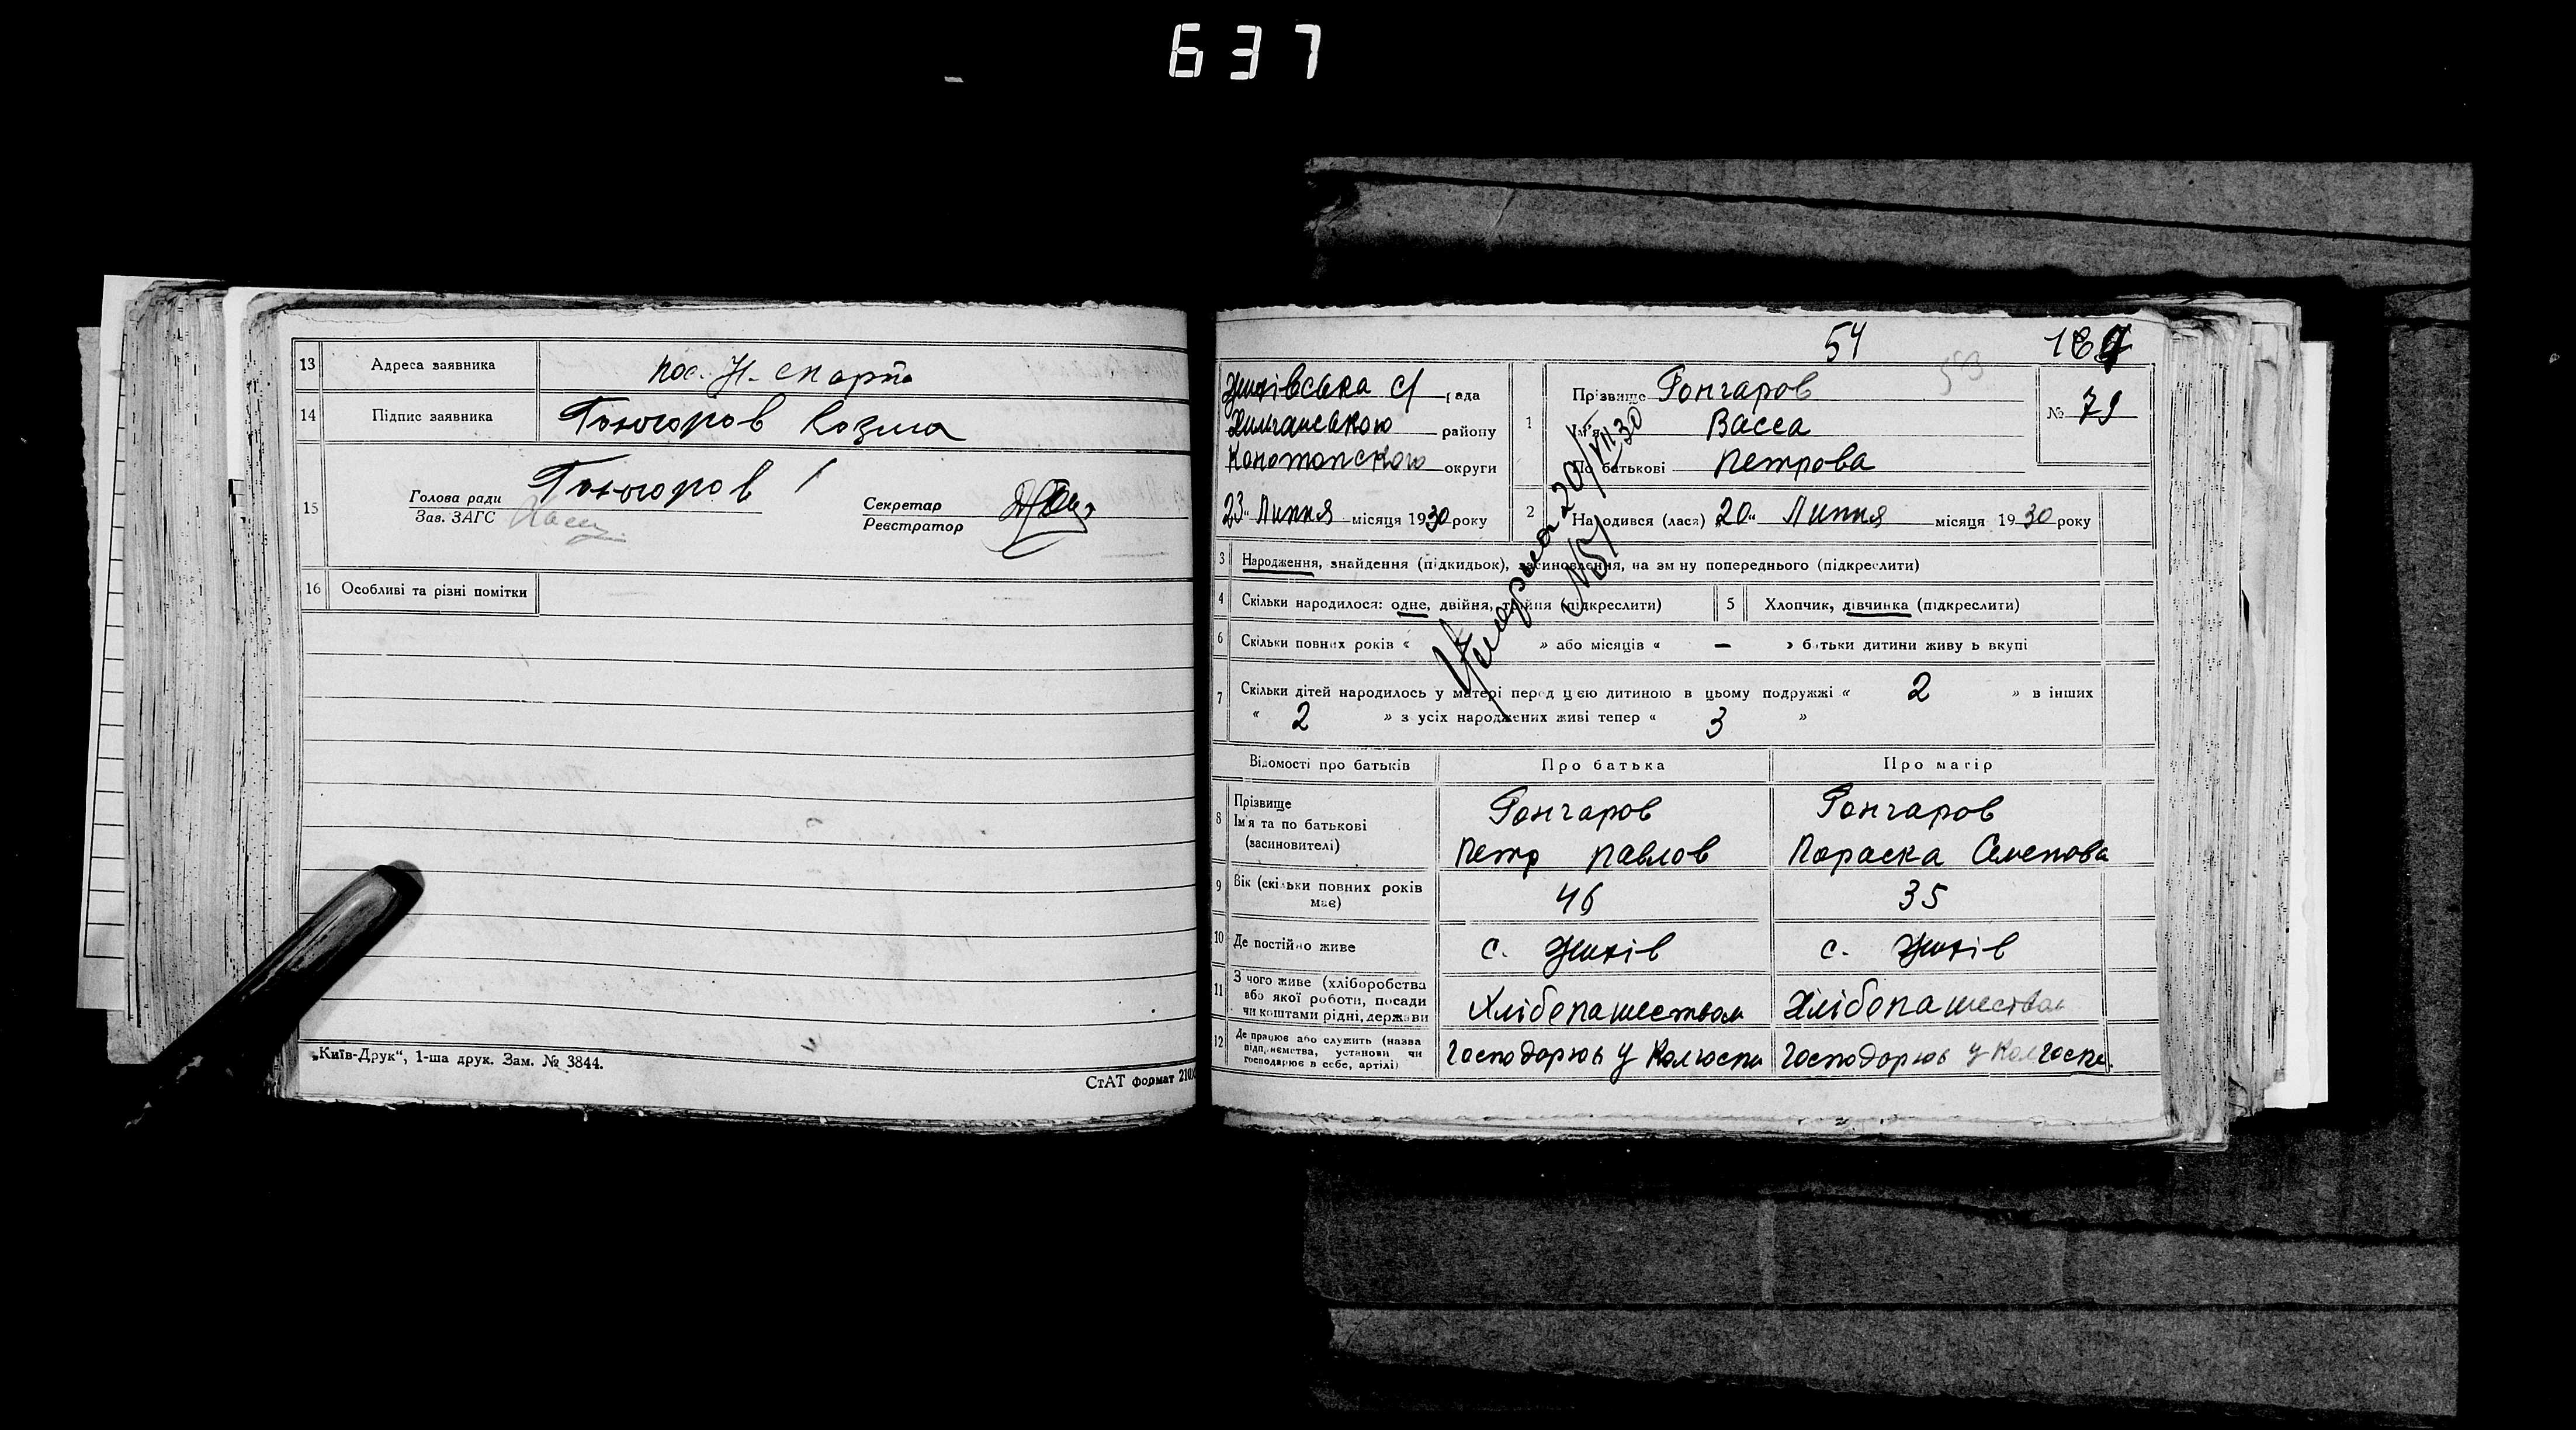 637
13 Адреса заявника пос. Н. спарта
14 Підпис заявника Гончаров Козма
15 Голова ради Гончаров
Зав. ЗАГС
Секретар
Реєстратор
16 Особливі та різні помітки
„Київ-Друк“, 1-ша друк. Зам. № 3844.
СтАТ формат 210
54
53
рада
району
Конотопского округи
23 „ Липня місяця 1930 року
1 Прізвище Гончаров
Ім'я Васса
По батькові Петрова
№ 79
2 Народився (лася) „20“ Липня місяця 1930 року
3 Народження, знайдення (підкидьок), засиновлення, на зміну попереднього (підкреслити)
4 Скільки народилося: одне, двійня, трійня (підкреслити)
5 Хлопчик, дівчинка (підкреслити)
6 Скільки повних років « » або місяців « — » батьки дитини живуть вкупі
7 Скільки дітей народилось у матері перед цією дитиною в цьому подружжі « 2 » в інших
« 2 » з усіх народжених живі тепер « 3 »
20/VII 30
Відомості про батьків Про батька Про матір
8 Прізвище
Ім'я та по батькові
(засиновителі)
Гончаров
Петр Павлов
Гончаров
Параска Семенова
9 Вік (скільки повних років
має)
46 35
10 Де постійно живе с. с.
11 З чого живе (хліборобства
або якої роботи, посади
чи коштами рідні, держави
Хлібопашеством Хлібопашеством
12 Де працює або служить (назва
підприємства, установи чи
господарює в себе, артілі)
Господорюь у Колгоспи Господорюь у Колгоспи.